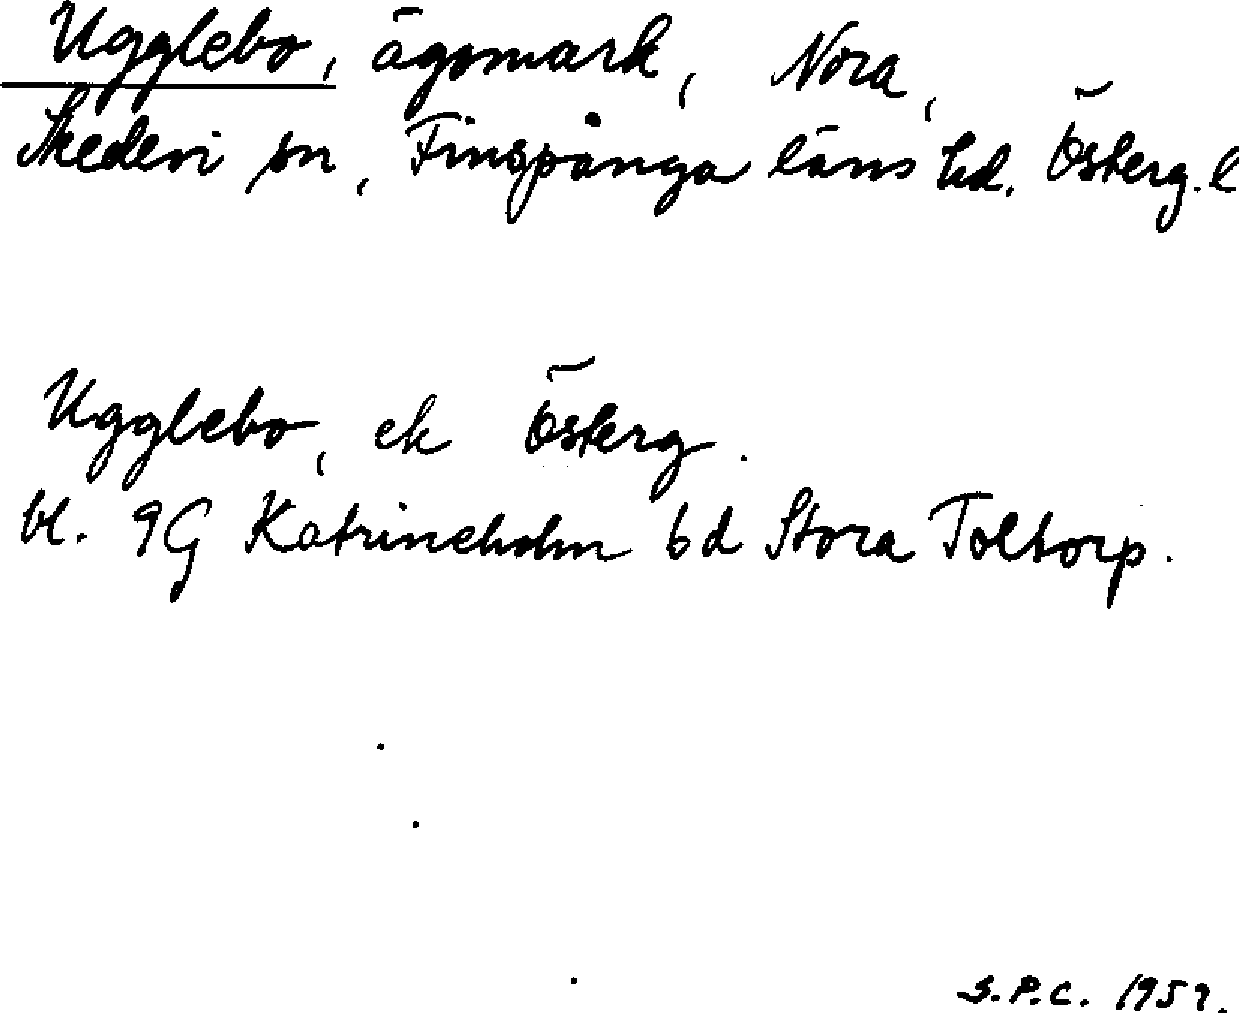 Ugglebo, ägomark, Nora,
Skedevi sn, Finspånga läns hd. Österg. l
Ugglebo, ek Österg.
bl. 9G Katrineholm 6d Stora Toltorp.
S.P.C. 1959.